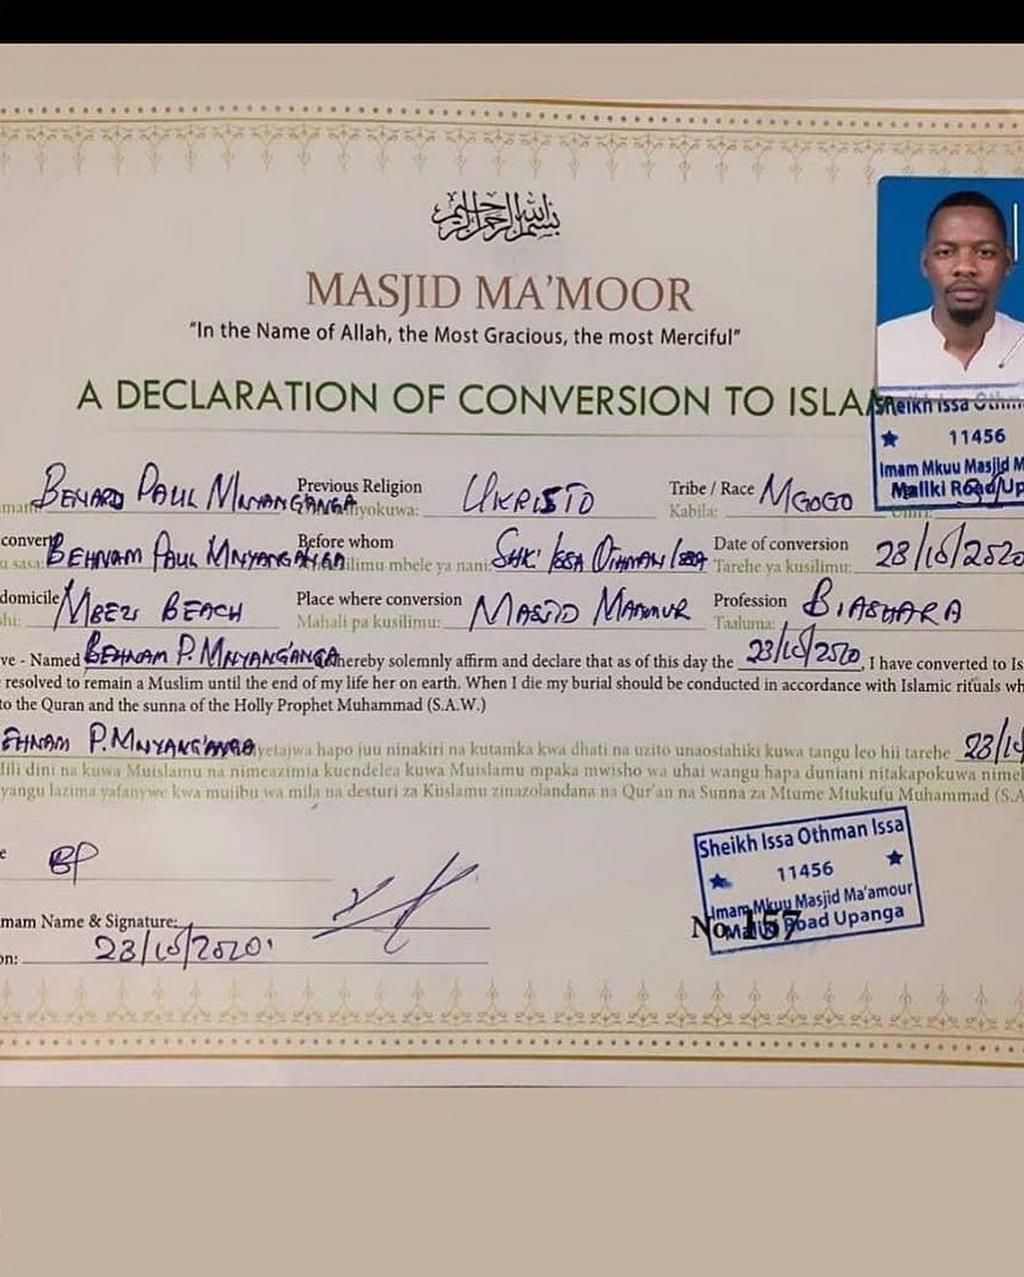 بسم الله الرحمن الرحيم
MASJID MA'MOOR
"In the Name of Allah, the Most Gracious, the most Merciful"
A DECLARATION OF CONVERSION TO ISLAM
Sheikh Issa Othm
11456
Imam Mkuu Masjid M
Maliki Road/Up
BENARD PAUL MNYANGANGA Previous Religion UKRISTO Tribe / Race MGOGO
nyokuwa: Kabila: Umri:
convert BEHNAM PAUL MNYANGANGA Before whom SHK' ISSA OTHMAN ISSA Date of conversion 23/10/2020
u sasa: kusilimu mbele ya nani: Tarehe ya kusilimu:
domicile MBEZI BEACH Place where conversion MASJID MAAMUR Profession BIASHARA
shi: Mahali pa kusilimu: Taaluma:
ve - Named BEHNAM P. MNYANG'ANGA hereby solemnly affirm and declare that as of this day the 23/10/2020, I have converted to Is
resolved to remain a Muslim until the end of my life her on earth. When I die my burial should be conducted in accordance with Islamic rituals wh
to the Quran and the sunna of the Holly Prophet Muhammad (S.A.W.)
EHNAM P. MNYANG'ANGA yetajwa hapo juu ninakiri na kutamka kwa dhati na uzito unaostahiki kuwa tangu leo hii tarehe 23/10
fili dini na kuwa Muislamu na nimeazimia kuendelea kuwa Muislamu mpaka mwisho wa uhai wangu hapa duniani nitakapokuwa nimek
yangu lazima yafanywe kwa mujibu wa mila na desturi za Kiislamu zinazolandana na Qur'an na Sunna za Mtume Mtukufu Muhammad (S.A
e BP
Sheikh Issa Othman Issa
11456
Imam Mkuu Masjid Ma'amour
Maliki Road Upanga
No. 157
mam Name & Signature:
on: 23/10/2020